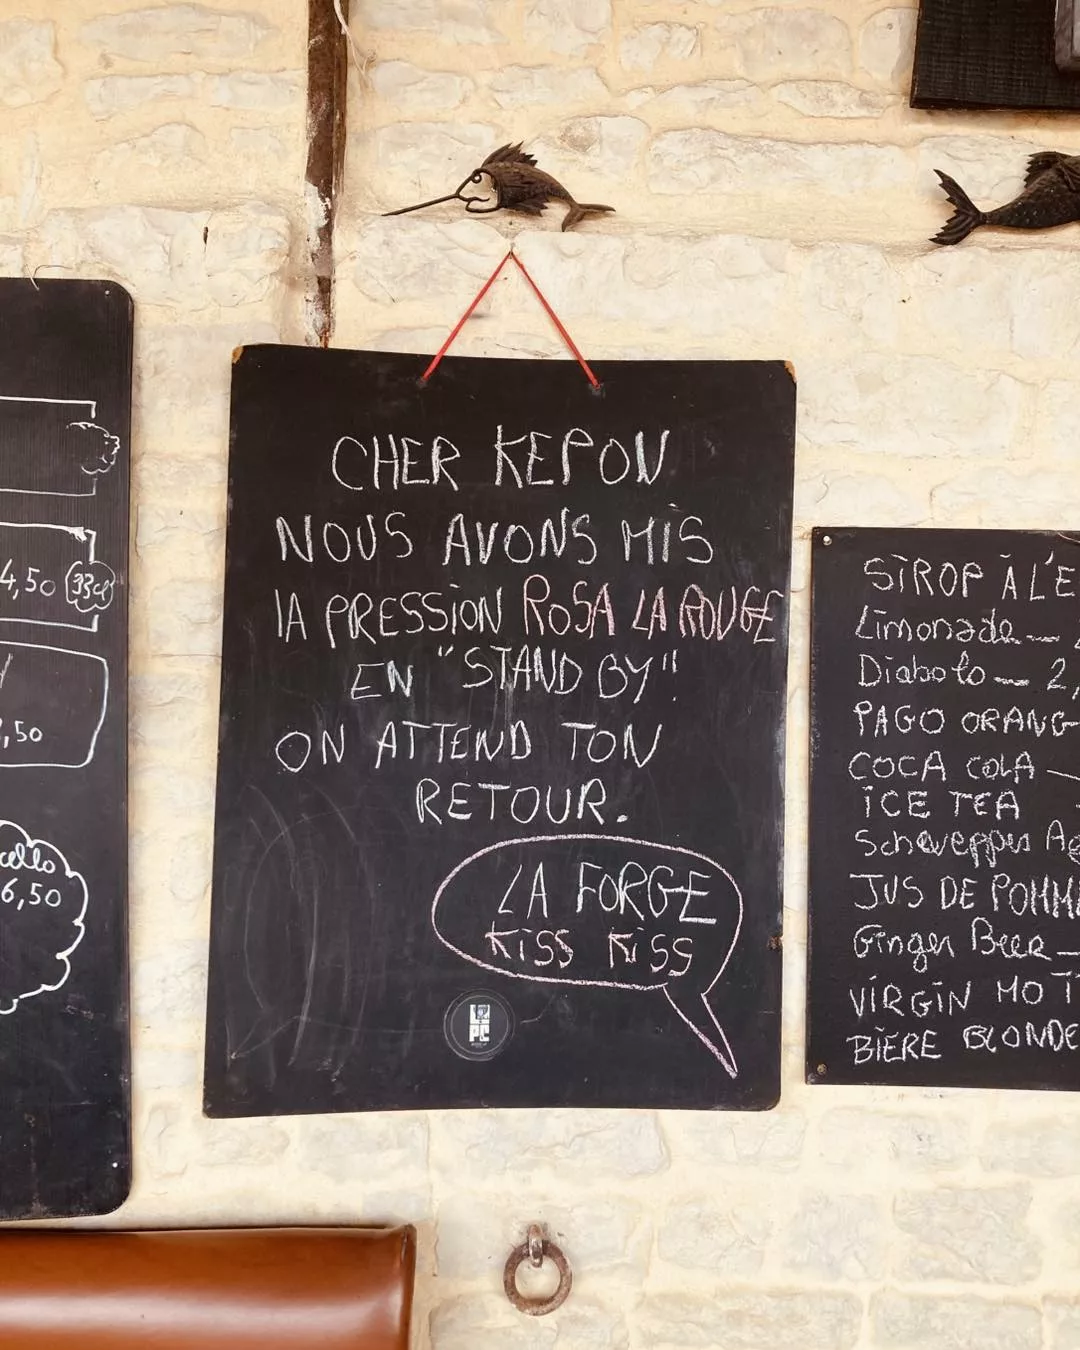 4,50 33cl
,50
cello
6,50
CHER KEPON
NOUS AVONS MIS
lA PRESSiON ROSA LA ROUGE
EN "STAND BY"
ON ATTEND TON
RETOUR.
LA FORGE
KiSS KiSS
PC
SiROP À L'E
Limonade —
Diabolo — 2,
PAGO ORANG
COCA COLA —
iCE TEA
Scheweppes Ag
JUS DE POMM
Ginger Beer —
ViRGiN MOJi
BiÈRE BLONDE